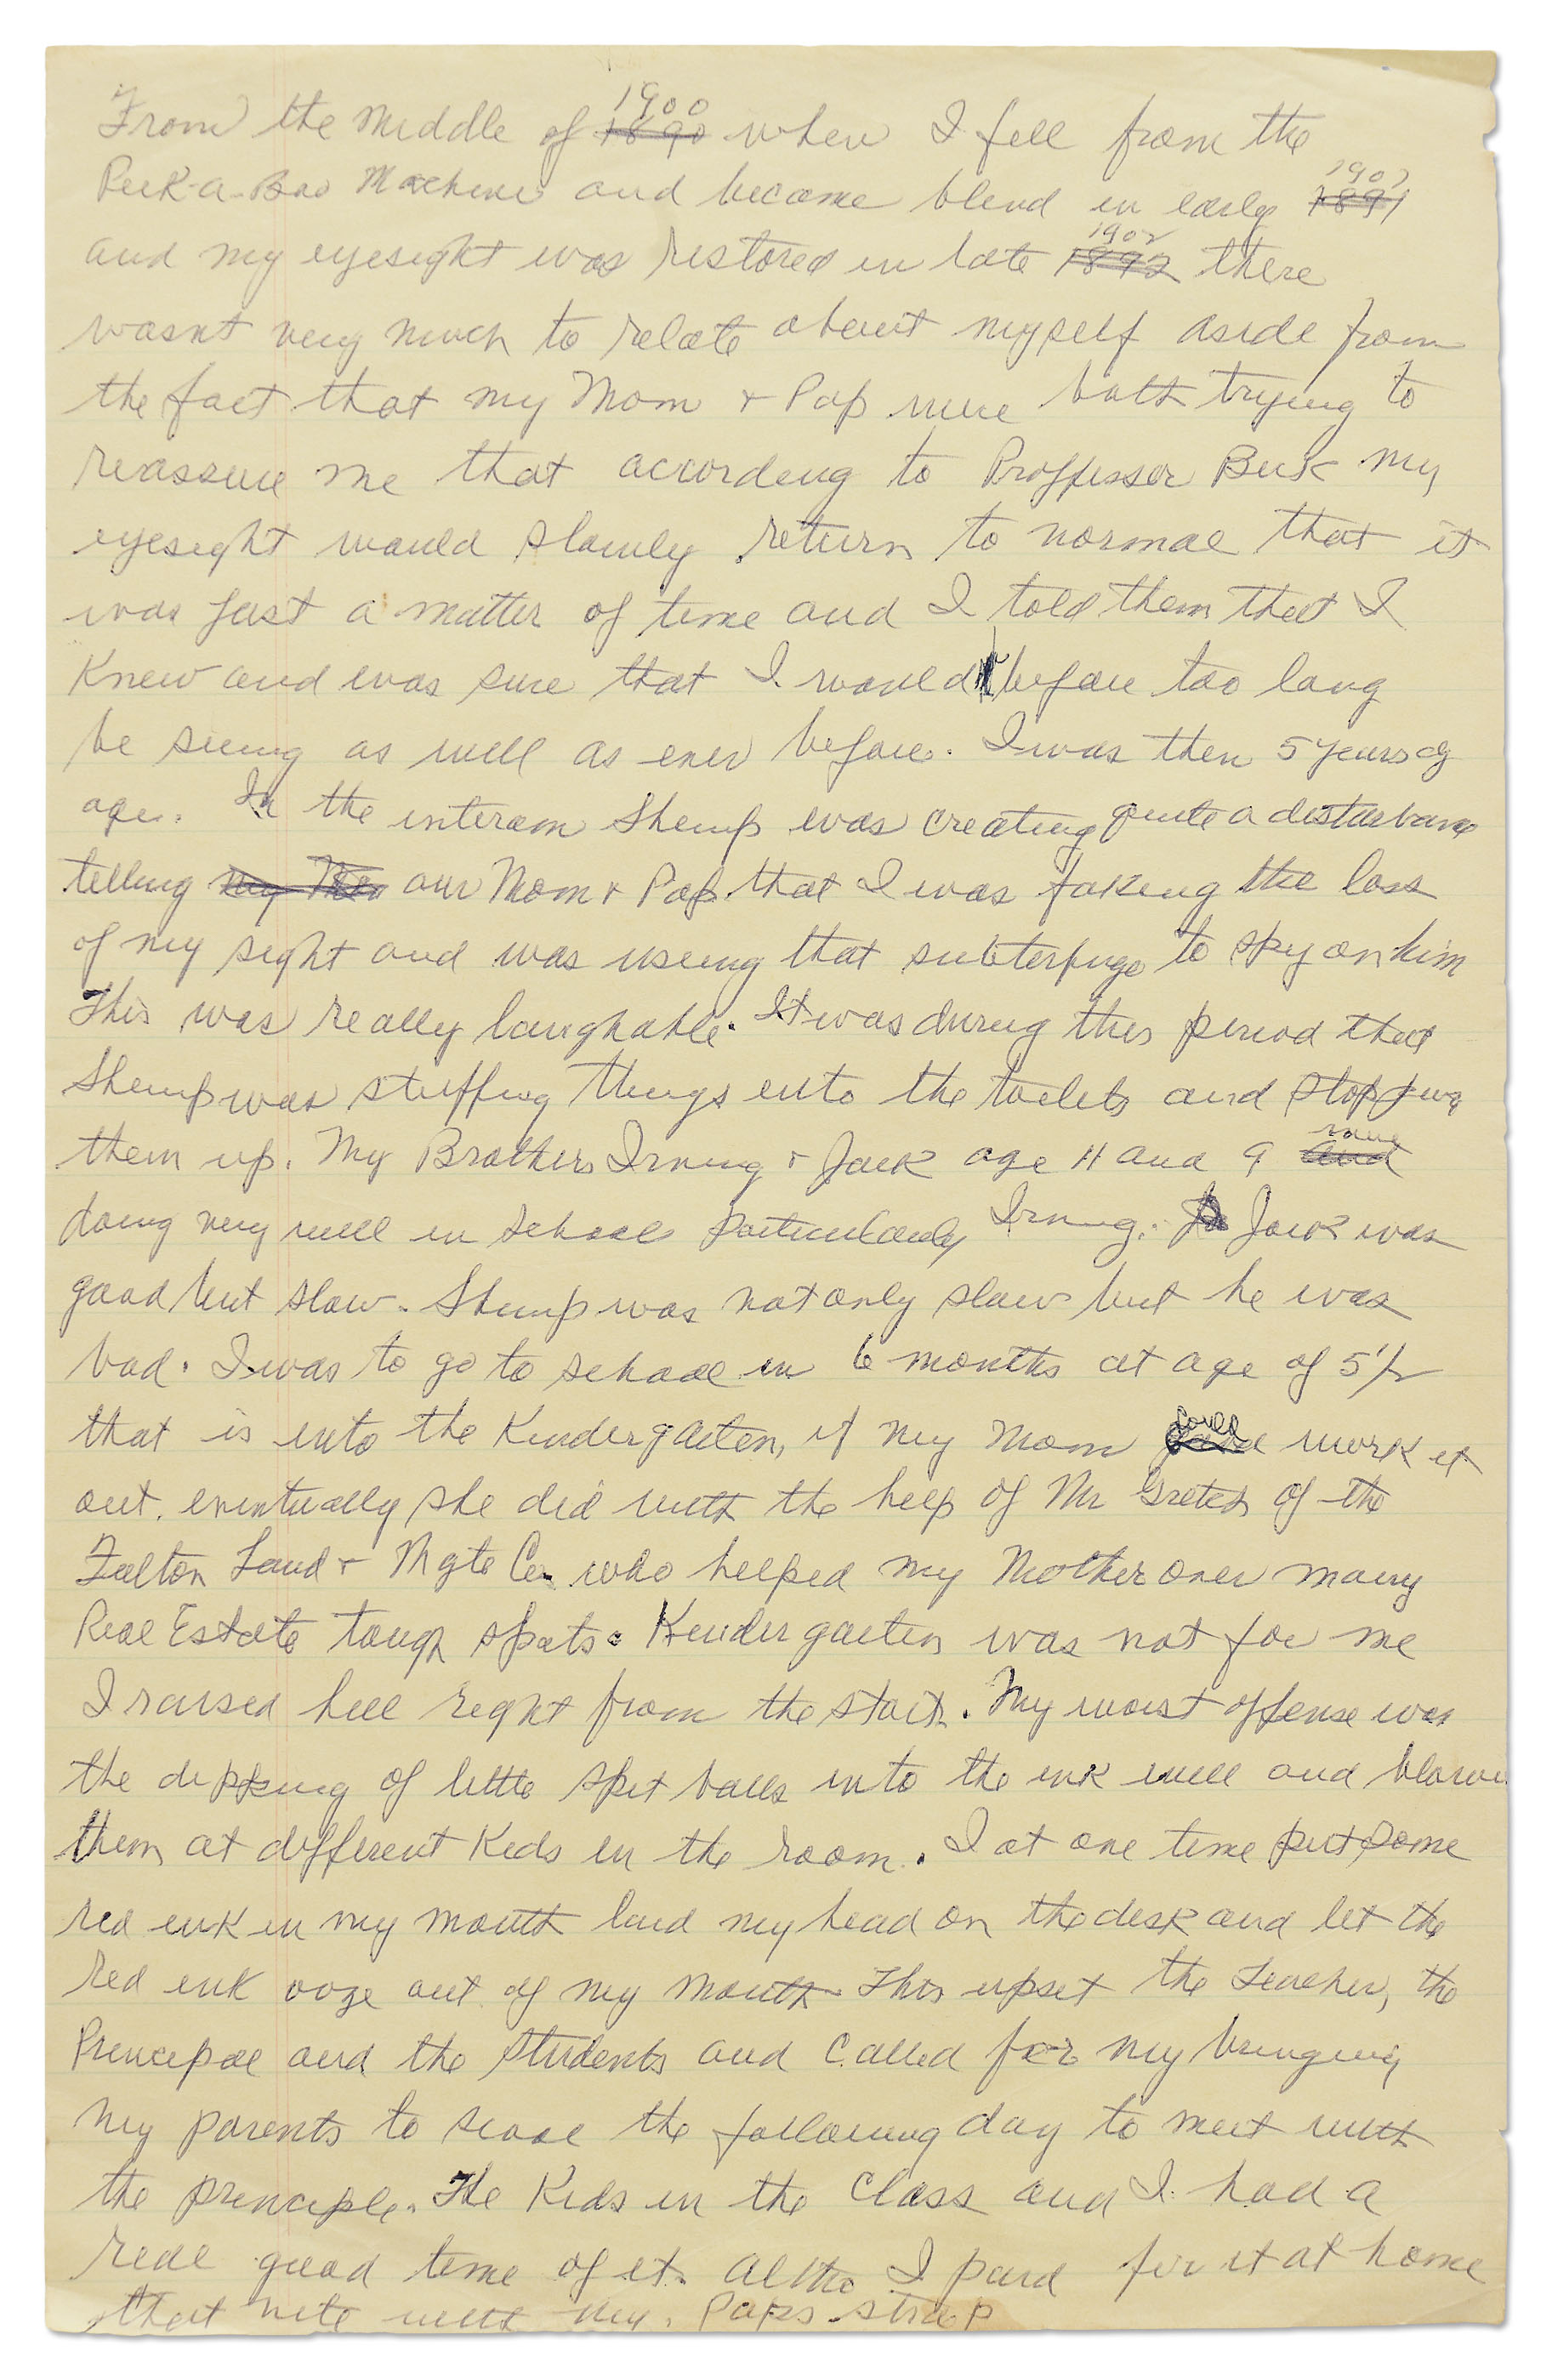 From the Middle of 1900 when I fell from the
Peek-a-Boo Machine and became blind in early 1901
and my eyesight was restored in late 1902 there
wasnt very much to relate about myself aside from
the fact that my Mom + Pop were both trying to
reassure me that according to Proffessor Beck my
eyesight would slowly return to normal that it
was just a matter of time and I told them that I
Knew and was sure that I would before too long
be seeing as well as ever before. I was then 5 years of
age. In the interem Shemp was creating quite a disturbance
telling our Mom + Pop that I was faking the loss
of my sight and was useing that subterfuge to spy on him
This was really laughable. It was during this period that
Shemp was stuffing things into the toilets and stopping
them up. My Brothers Irving + Jack age 11 and 9 were
doing very well in school particularly Irving. Jack was
good but slow. Shemp was not only slow but he was
bad. I was to go to school in 6 months at age of 5 1/2
that is into the Kindergarten, if my Mom could work it
out. eventually she did with the help of Mr of the
Fulton Land + Mgte Co. who helped my Mother over many
Real Estate tough spots. Kindergarten was not for me
I raised hell right from the start. My worst offense was
the dipping of little spit balls into the ink well and blowi
them at different Kids in the room. I at one time put some
red ink in my mouth laid my head on the desk and let the
red ink ooze out of my mouth This upset the teacher, the
Principal and the students and called for my bringing
my parents to scool the following day to meet with
the principle. The Kids in the Class and I had a
real good time of it. altho I paid for it at home
that nite with my Paps strap